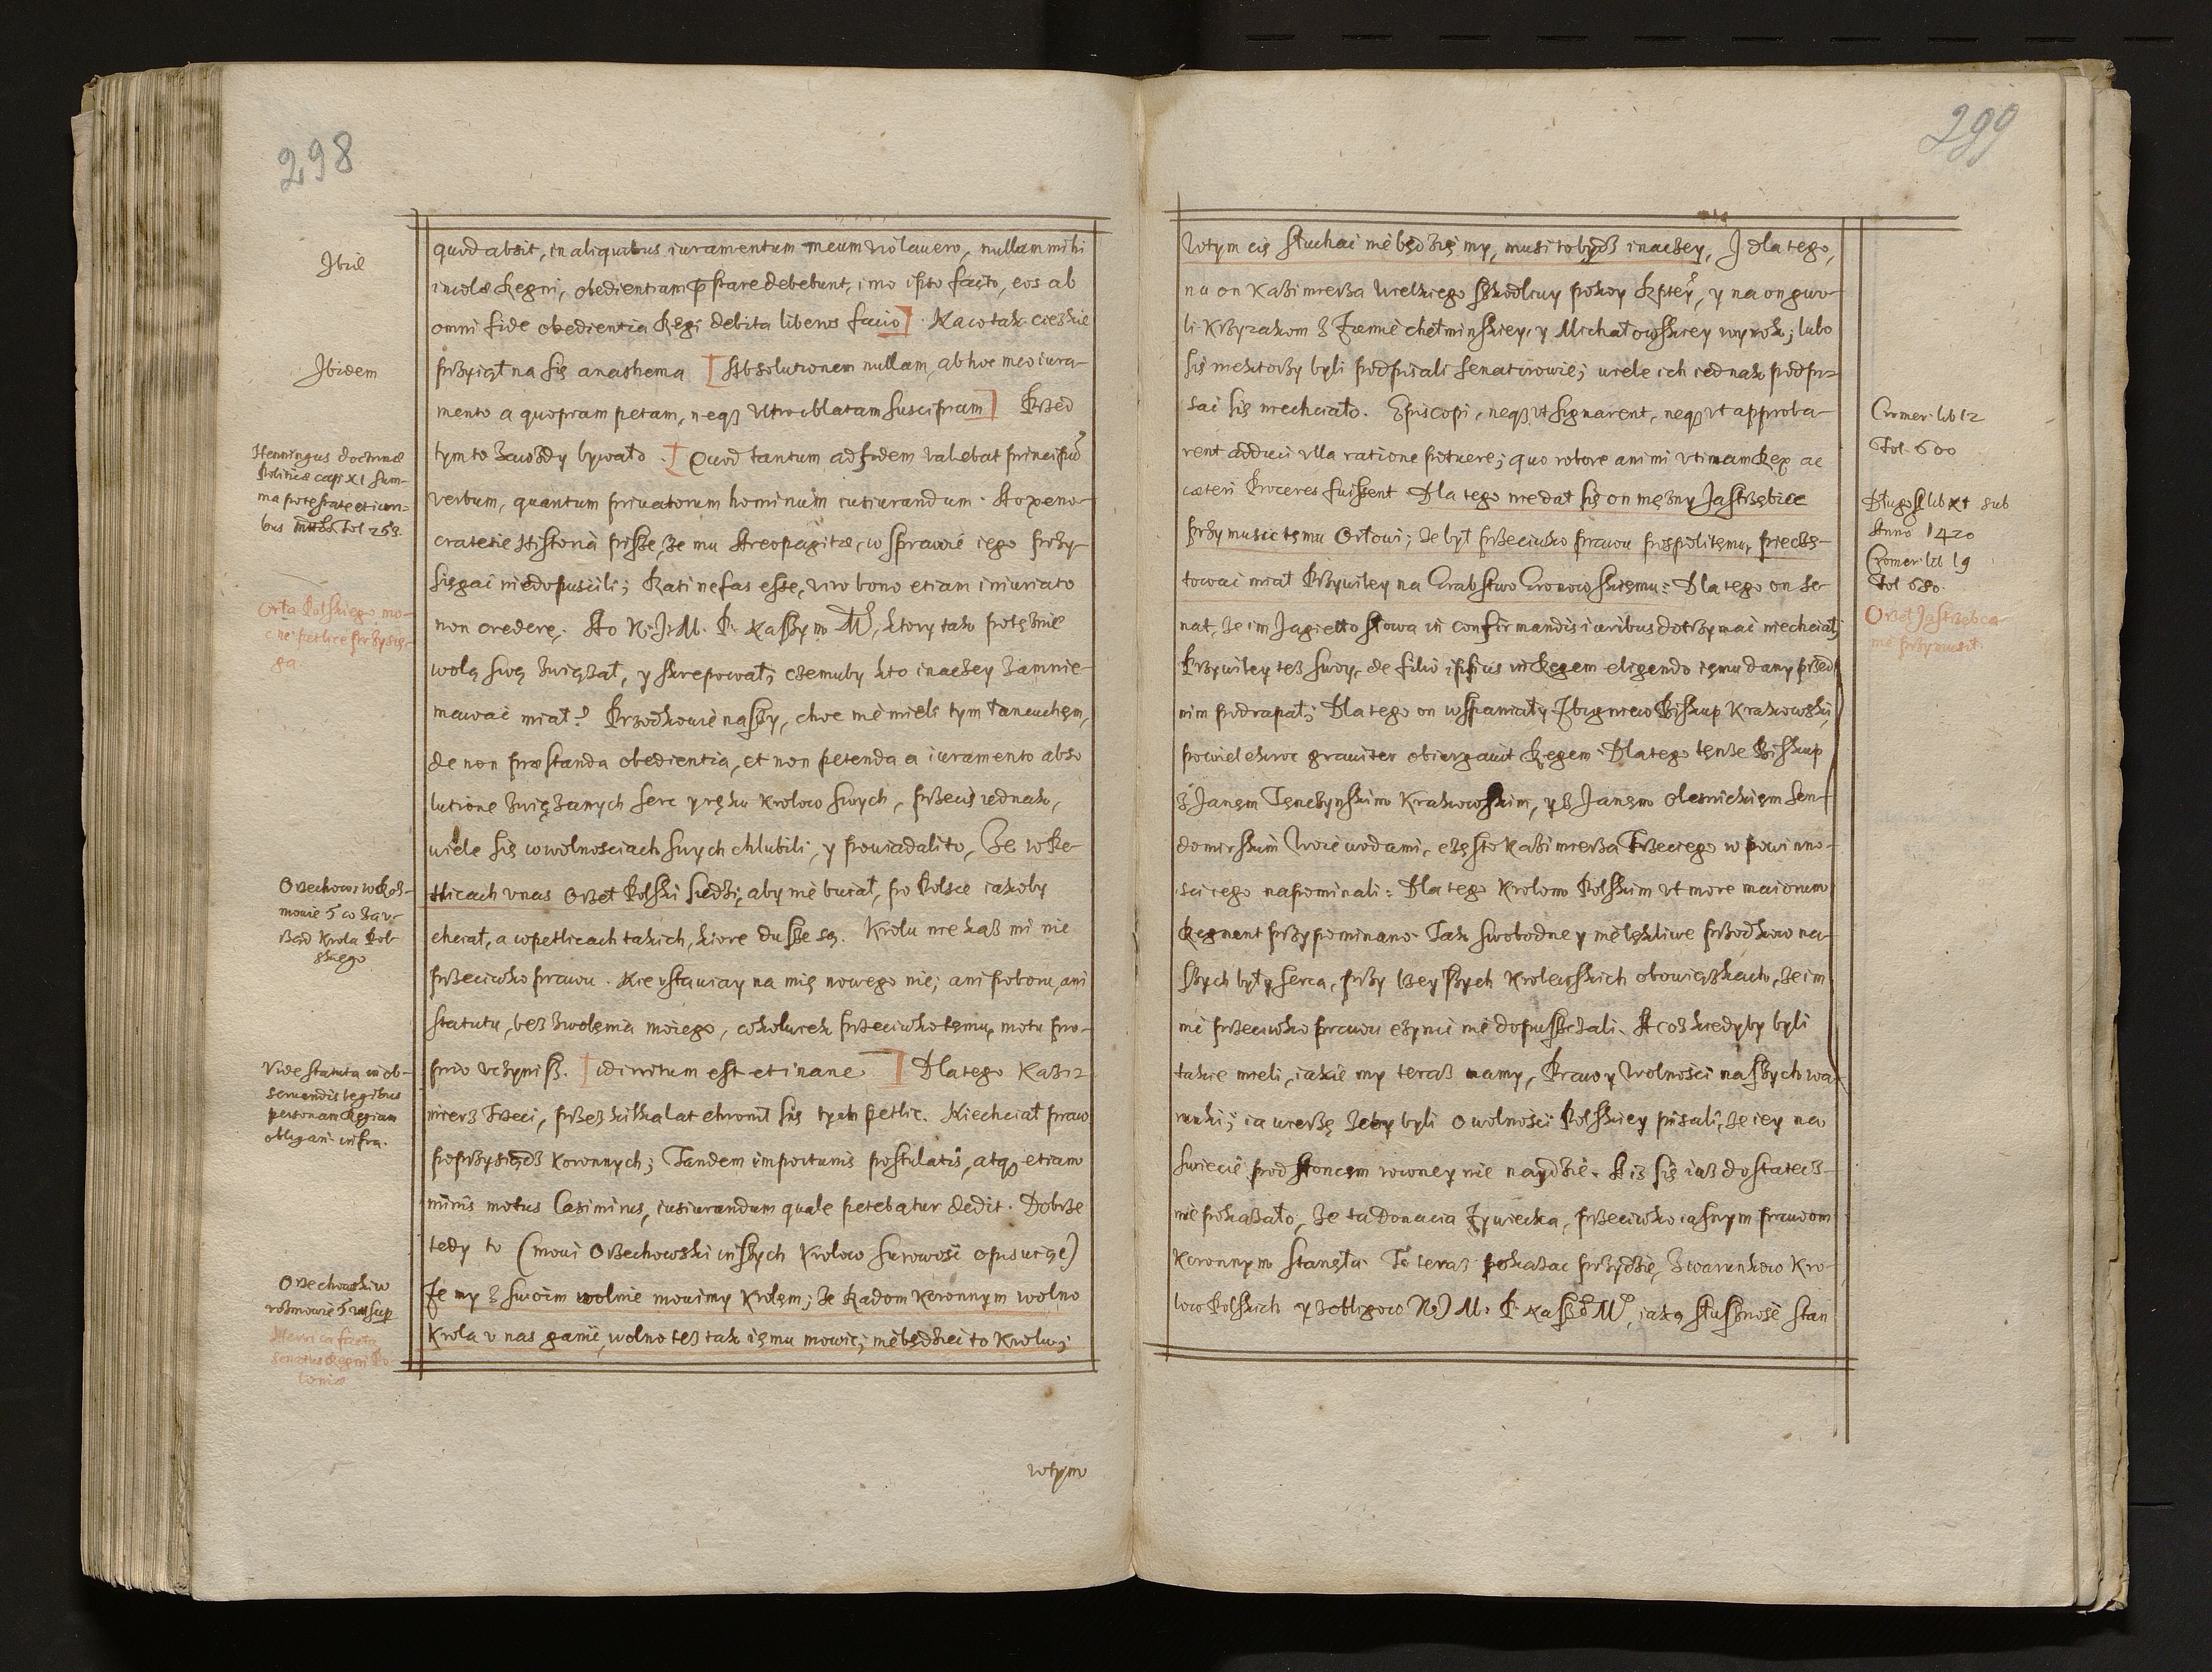 298
Ibid
Ibidem
Henningus doctrinæ
Politicæ cap: XI sum-
ma potestate et iuri-
bus fol 253.
Orła Polskiego mo-
cne petlice przysię-
ga.
Orzechows: w Roz-
mowie 5 co za v-
rząd Krola Pol-
skiego
Vide statuta in ob-
seruandis legibus
personam Regiam
obligari infra.
Orzechowski w
rozmowie 5
senatus Regni Po-
loniæ
quod absit, in aliquibus iuramentum meum violauero, nullam mihi
incolæ Regni, obedientiam p̄stare debebunt, imo ipso facto, eos ab
omni fide obedientia Regi debita liberos facio] Na co tak cieszkie
przyiął na się anathema [Absolutionem nullam, ab hoc meo iura-
mento a quopiam petam, neqȝ vltro oblatam suscipiam] Przed
tym to zawżdy bywało. [Quod tantum ad fidem valebat principū
verbum, quantum priuatorum hominum iusiurandum. A o Xeno-
cratesie Historia pisze, że mu Areopagitæ, w sprawie iego przy-
sięgać niedopuścili; Rati nefas esse, viro bono etiam iniurato
non credere. A o K. J. M. P. Naszym M, ktory tak potężnie
wolą swą związał, y skrępował; czemuby kto inaczey zamnie-
mawać miał? Przodkowie naszy, choc nie mieli tym łancuchem,
de non præstanda obedientia, et non petenda a iuramento abso
lutione związanych serc y ręku Krolow swych, przeciż iednak,
wiele się w wolnosciach swych chlubili, y powiadali to, Że w Pe-
tlicach v nas Orzeł Polski siedzi, aby nie buiał, po Polsce iakoby
chciał, a w petlicach takich, ktore dusze są. Krolu nie każ mi nic
przeciwko prawu. Nie vstawiay na mię nowego nic; ani poboru, ani
statutu, bez zwolęnia moiego, cokolwiek przeciwko temu, motu pro-
prio vczynisz. [id irritum est et inane] Dlatego Kazi-
mierz Trzeci, przez kilka lat chronił się tych petlic. Niechciał praw
poprzysiądz Koronnych; Tandem importunis postulatis, atqȝ etiam
minis motus Casimirus, iusiurandum quale petebatur dedit. Dobrze
tedy to (mowi Orzechowski inszych Krolow surowość opisuiąc)
Że my z swoim wolnie mowimy Krolem; że Radom Koronnym wolno
Krola v nas ganić, wolno też tak iemu mowić; nie będzieć to Krolu;
wtym
299
Wtym cię słuchać nie będziemy, musi to bydź inaczey, I dla tego,
na on Kazimierza Wielkiego szkodliwy pokoy , y na on gwo-
li Krzyżakom z Ziemie chełminskiey, y Michałowskiey wyrok; lubo
się niektorzy byli podpisali senatorowie; wiele ich iednak podpi-
sać się niechciało. Episcopi, neqȝ vt signarent, neqȝ vt approba-
rent adduci vlla ratione potuere; quo robore animi vtinam Rex ac
cæteri Proceres fuissent Dla tego nie dał się on mężny Jastrzębiec
przymusić temu Orłowi; że był przeciwko prawu pospolitemu, pieczę-
tować miał Przywiley na Grabstwo Gronowskiemu: Dla tego on se-
nat, że im Jagiełło słowa in confirmandis iuribus dotrzymać niechciał;
Przywiley też swoy, de filio ipsius in Regem eligendo iemu dany przed
nim podrapał; Dla tego on wspaniały Zbigniew Biskup Krakowski,
powielekroć grauiter obiurgauit Regem: Dlatego tenże Biskup
z Janem Tęnczynskim Krakowskim, y z Janem Olesnickiem Sen-
domirskim Woiewodami, często Kazimierza Trzeciego w powinno-
sci iego napominali: Dla tego Krolom Polskim vt more maiorum
Regnent przypominano. Tak swobodne y nielękliwe przodkow na-
szych były serca, przy lzeyszych Krolewskich obowiązkach, że im
nic przeciwko prawu czynić nie dopuszczali. A coż kiedyby byli
takie mieli, iakie my teraz mamy, Praw y Wolności naszych wa-
runki; ia wierzę żeby byli o wolności Polskiey pisali, że iey na
swiecie pod słoncem rowney nie naydzie. Iż się iuż dostatecz-
nie pokazało, że ta Donacia Żywiecka, przeciwko iasnym prawom
Koronnym stanęła. To teraz pokazac przydzie, z warunkow Kro-
low Polskich y z obligow K. J. M. P. Nasz M, iaką słusznośc stan
Cromer lib 12
Fol. 600
Długosz lib XI sub
Anno 1420
Cromer lib 19
Fol 680.
Orzeł Jastrzębca
nie przymusił.